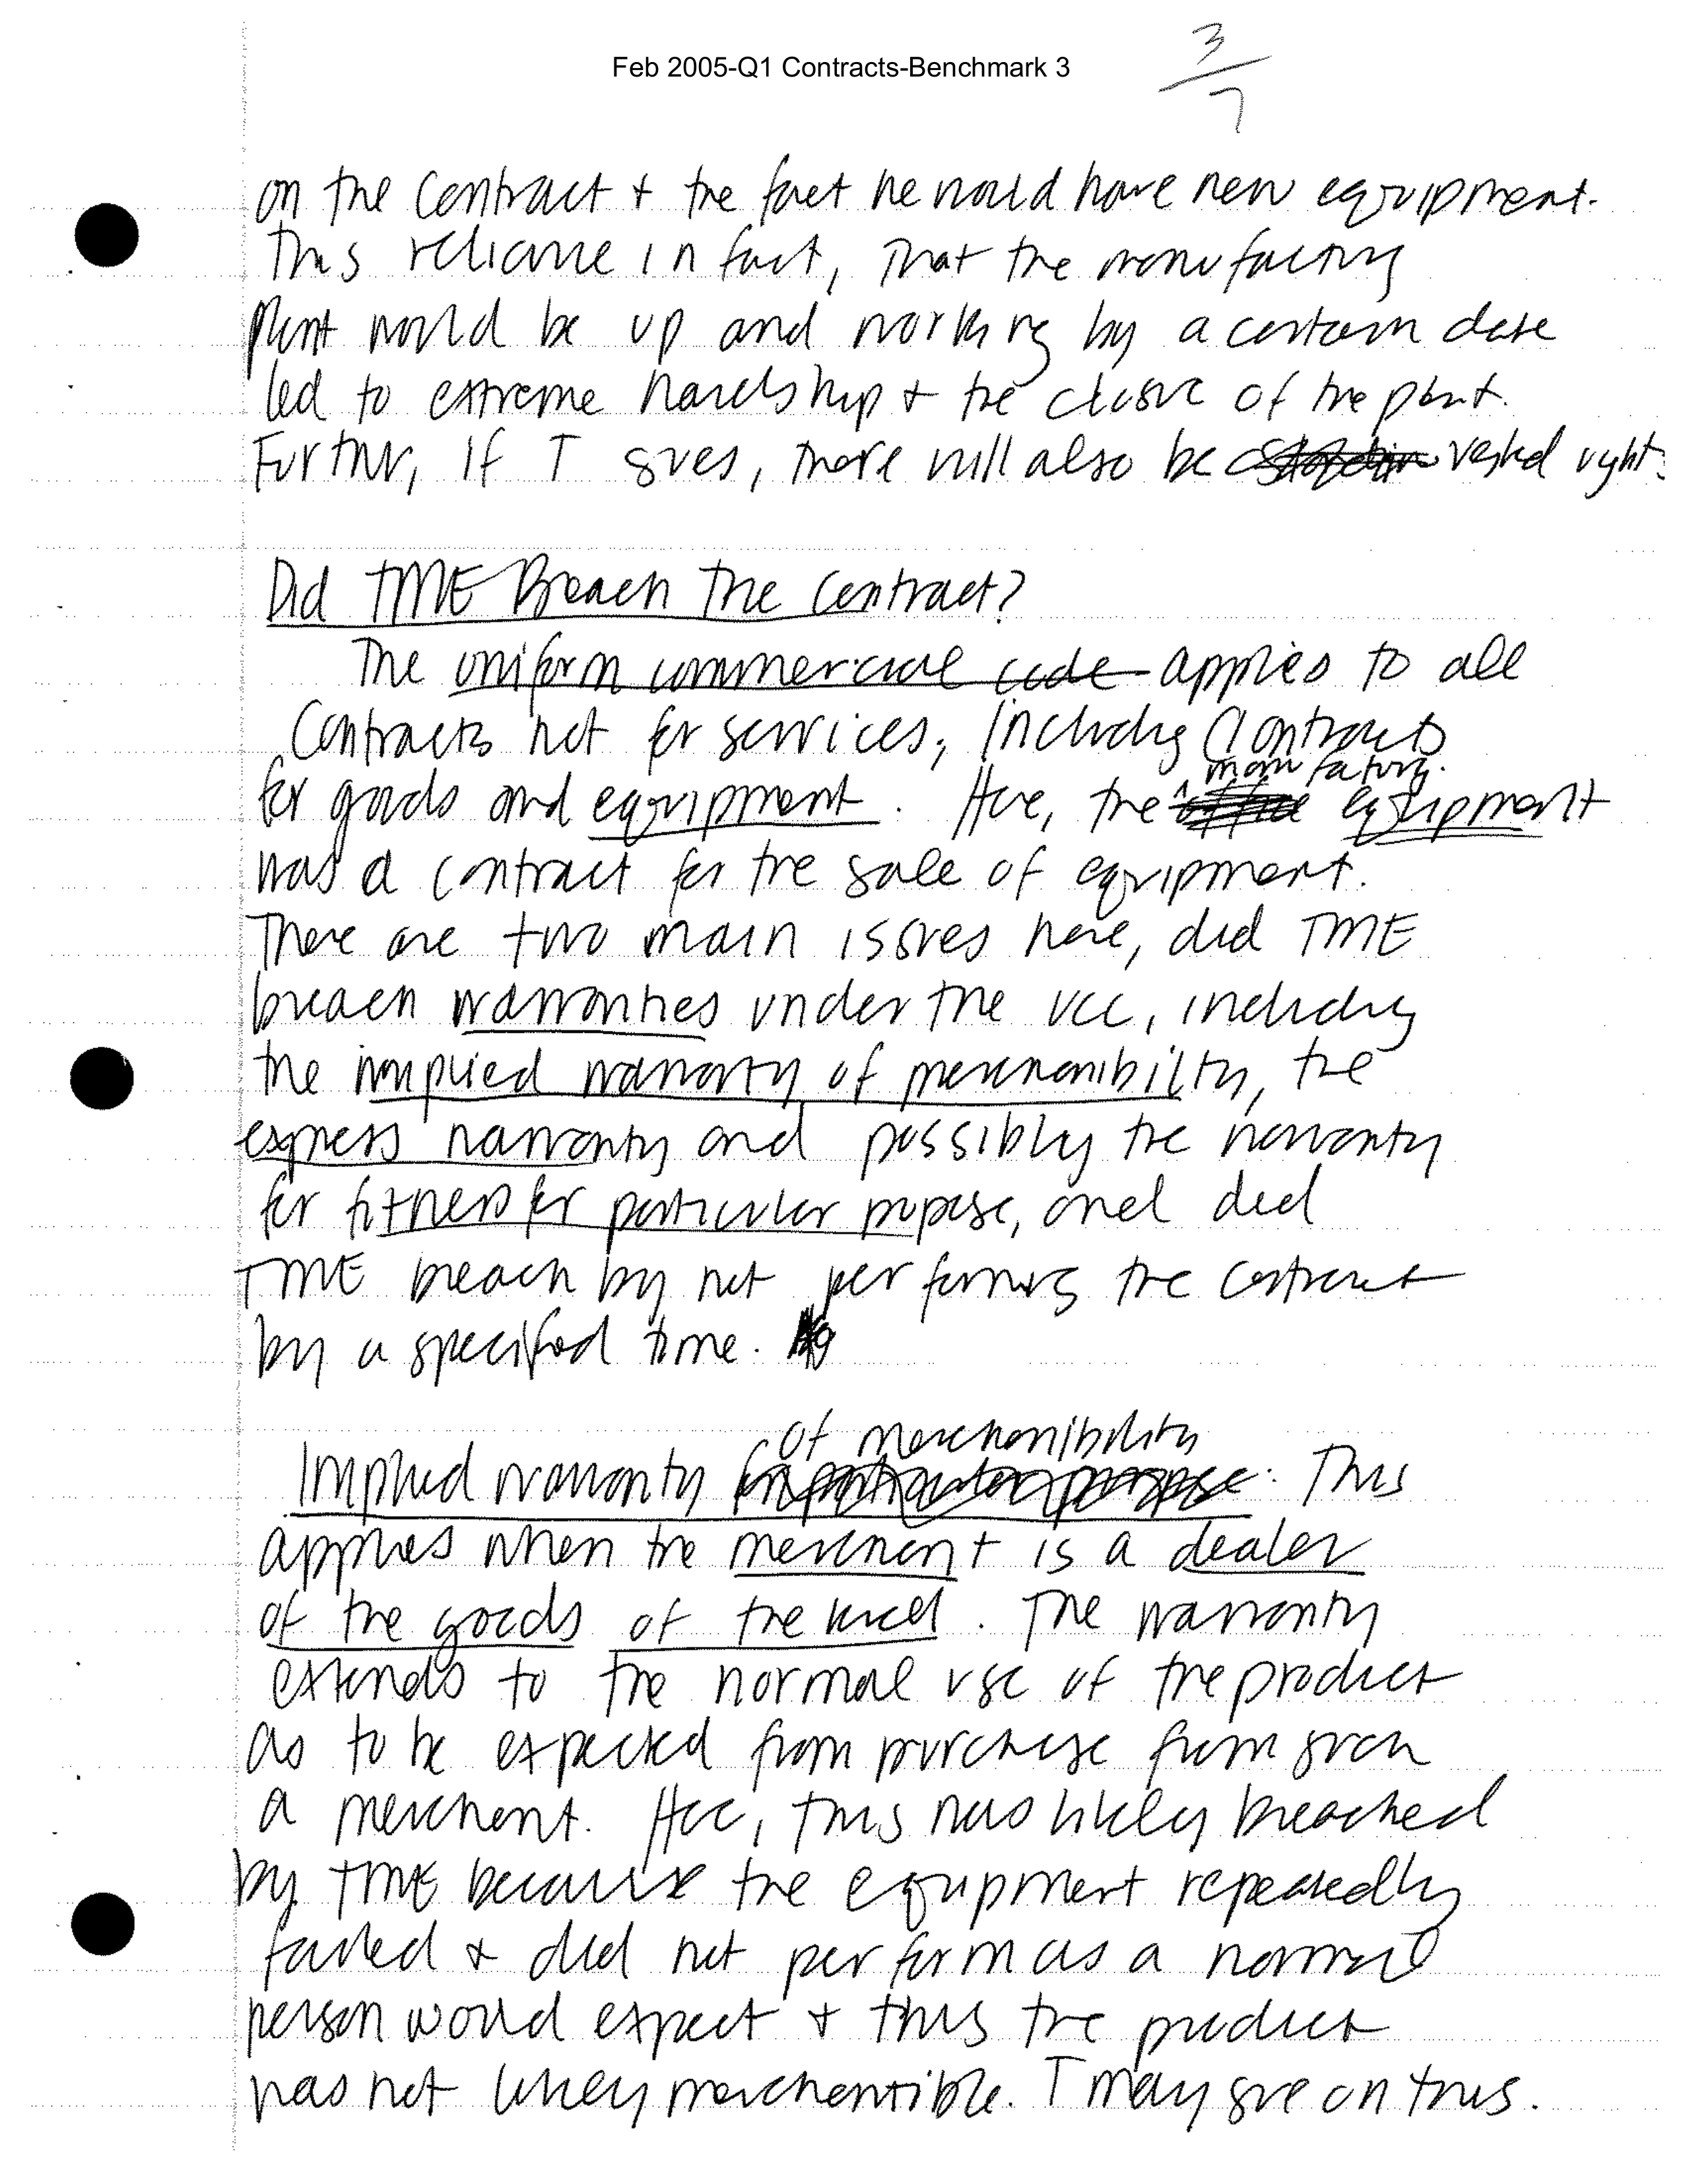 Feb 2005-Q1 Contracts-Benchmark 3
3/7
on the contract + the fact he would have new equipment.
This reliance in fact, that the manufacturing
plant would be up and working by a certain date
led to extreme hardship + the closure of the plant.
Further, if T sues, there will also be vested rights
Did TME Breach the Contract?
The uniform commercial code applies to all
Contracts not for services, including Contracts
for goods and equipment. Here, the manufacturing equipment
was a contract for the sale of equipment.
There are two main issues here, did TME
breach warranties under the UCC, including
the implied warranty of merchantibility, the
express warranty and possibly the warranty
for fitness for particular purpose, and did
TME breach by not performing the contract
by a specified time.
Implied warranty of merchantibility: This
applies when the merchant is a dealer
of the goods of the kind. The warranty
extends to the normal use of the product
as to be expected from purchase from such
a merchant. Here, this was likely breached
by TME because the equipment repeatedly
failed + did not perform as a normal
person would expect + thus the product
was not likely merchentible. T may sue on this.